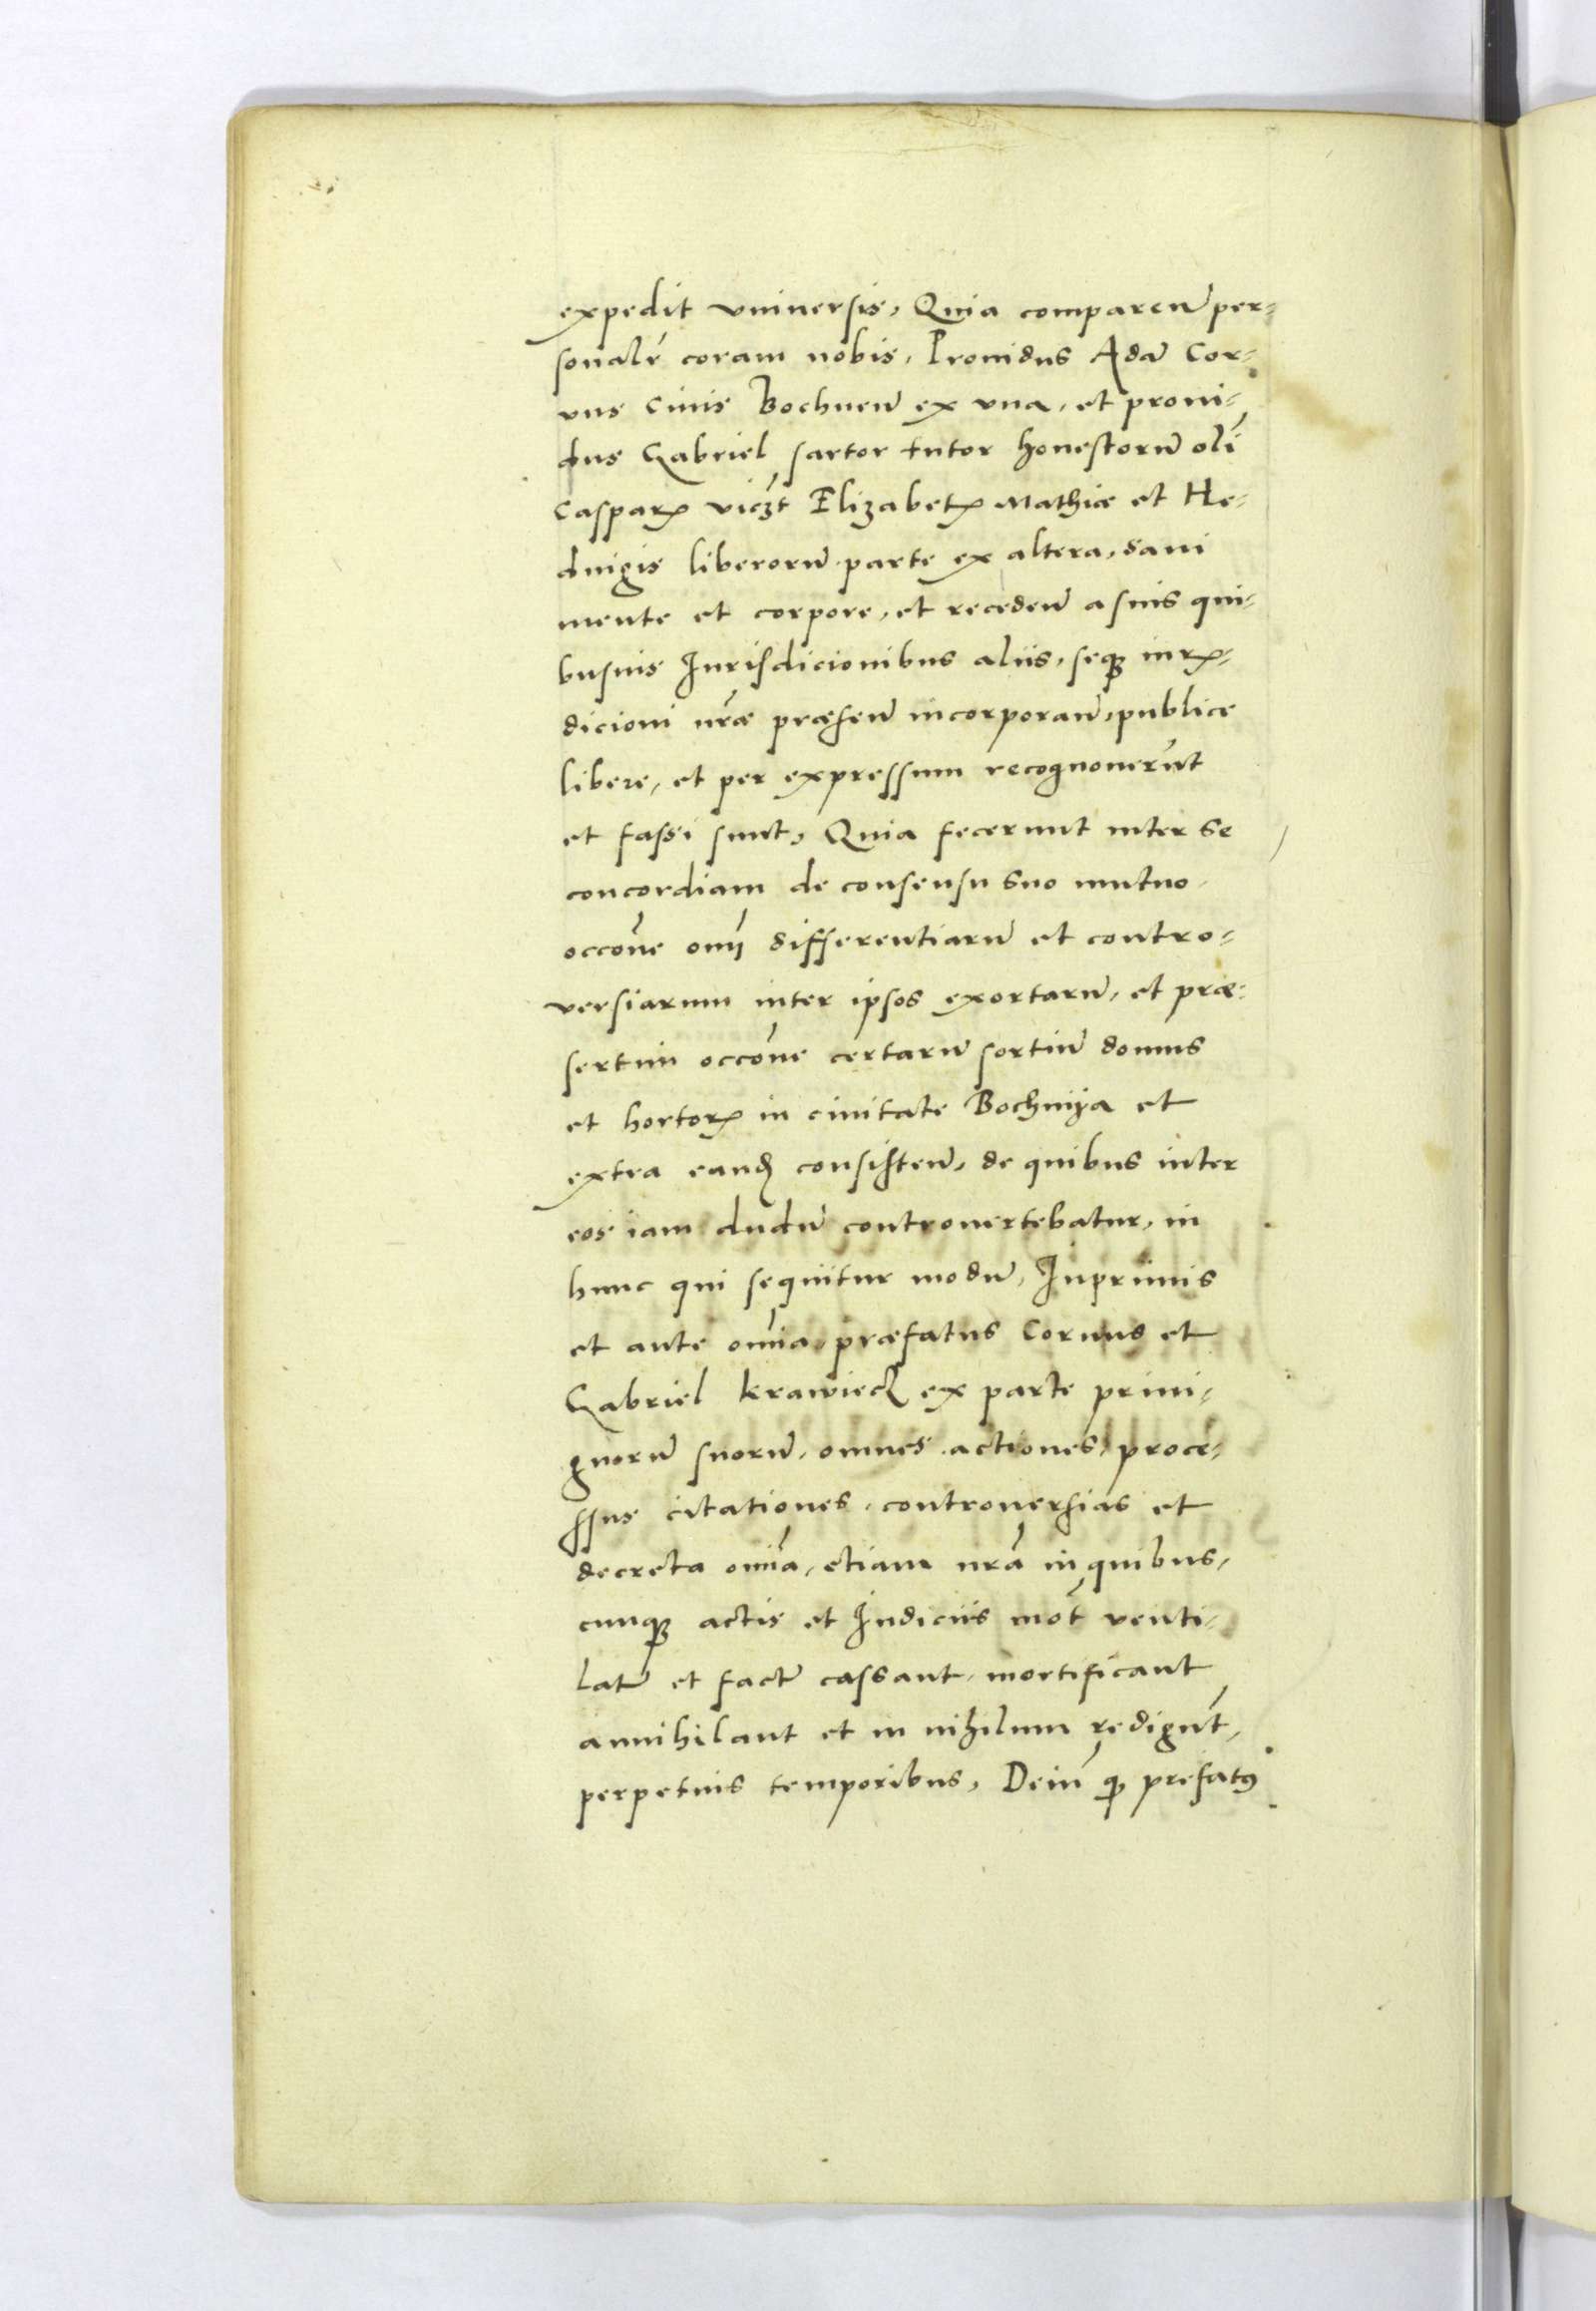 expedit vniuersis, Quia comparen̄ per-
sonalr̄ coram nobis, Prouidus Adā Cor-
uus Ciuis Bochnen̄ ex vna, et proui-
dus Gabriel sartor tutor honestorū olī
Casparꝝ viczt Elizabetꝝ Mathiæ et He-
duigis liberorū parte ex altera, sani
mente et corpore, et receden̄ a suis qui-
busuis Jurisdicionibus aliis, seqꝫ iurꝝ-
dicioni nr̄æ præsen̄ incorporan̄, publice
libere, et per expressum recognouerūt
et fassi sunt, Quia fecerunt inter se
concordiam de consensu suo mutuo
occōne omī differentiarū et contro-
versiarum inter ipsos exortarū, et præ-
sertim occōne certarū sortiū domus
et hortorꝝ in ciuitate Bochnija et
extra eandꝫ consisten̄, de quibus inter
eos iam dudū controuertebatur, in
hunc qui sequitur modū, Inprimis
et ante omīa, præfatus Coruus et
Gabriel krawiecz ex parte priui-
gnorū suorū, omnes actiones, proce-
ssus citationes, controuersias et
decreta omīa, etiam nrā in quibus-
cunqꝫ actis et Judiciis mot̄ venti-
lat̄ et fact̄ cassant, mortificant
annihilant et in nihilum redigūt,
perpetuis temporibus, Dein̄ qꝫ prefatꝰ